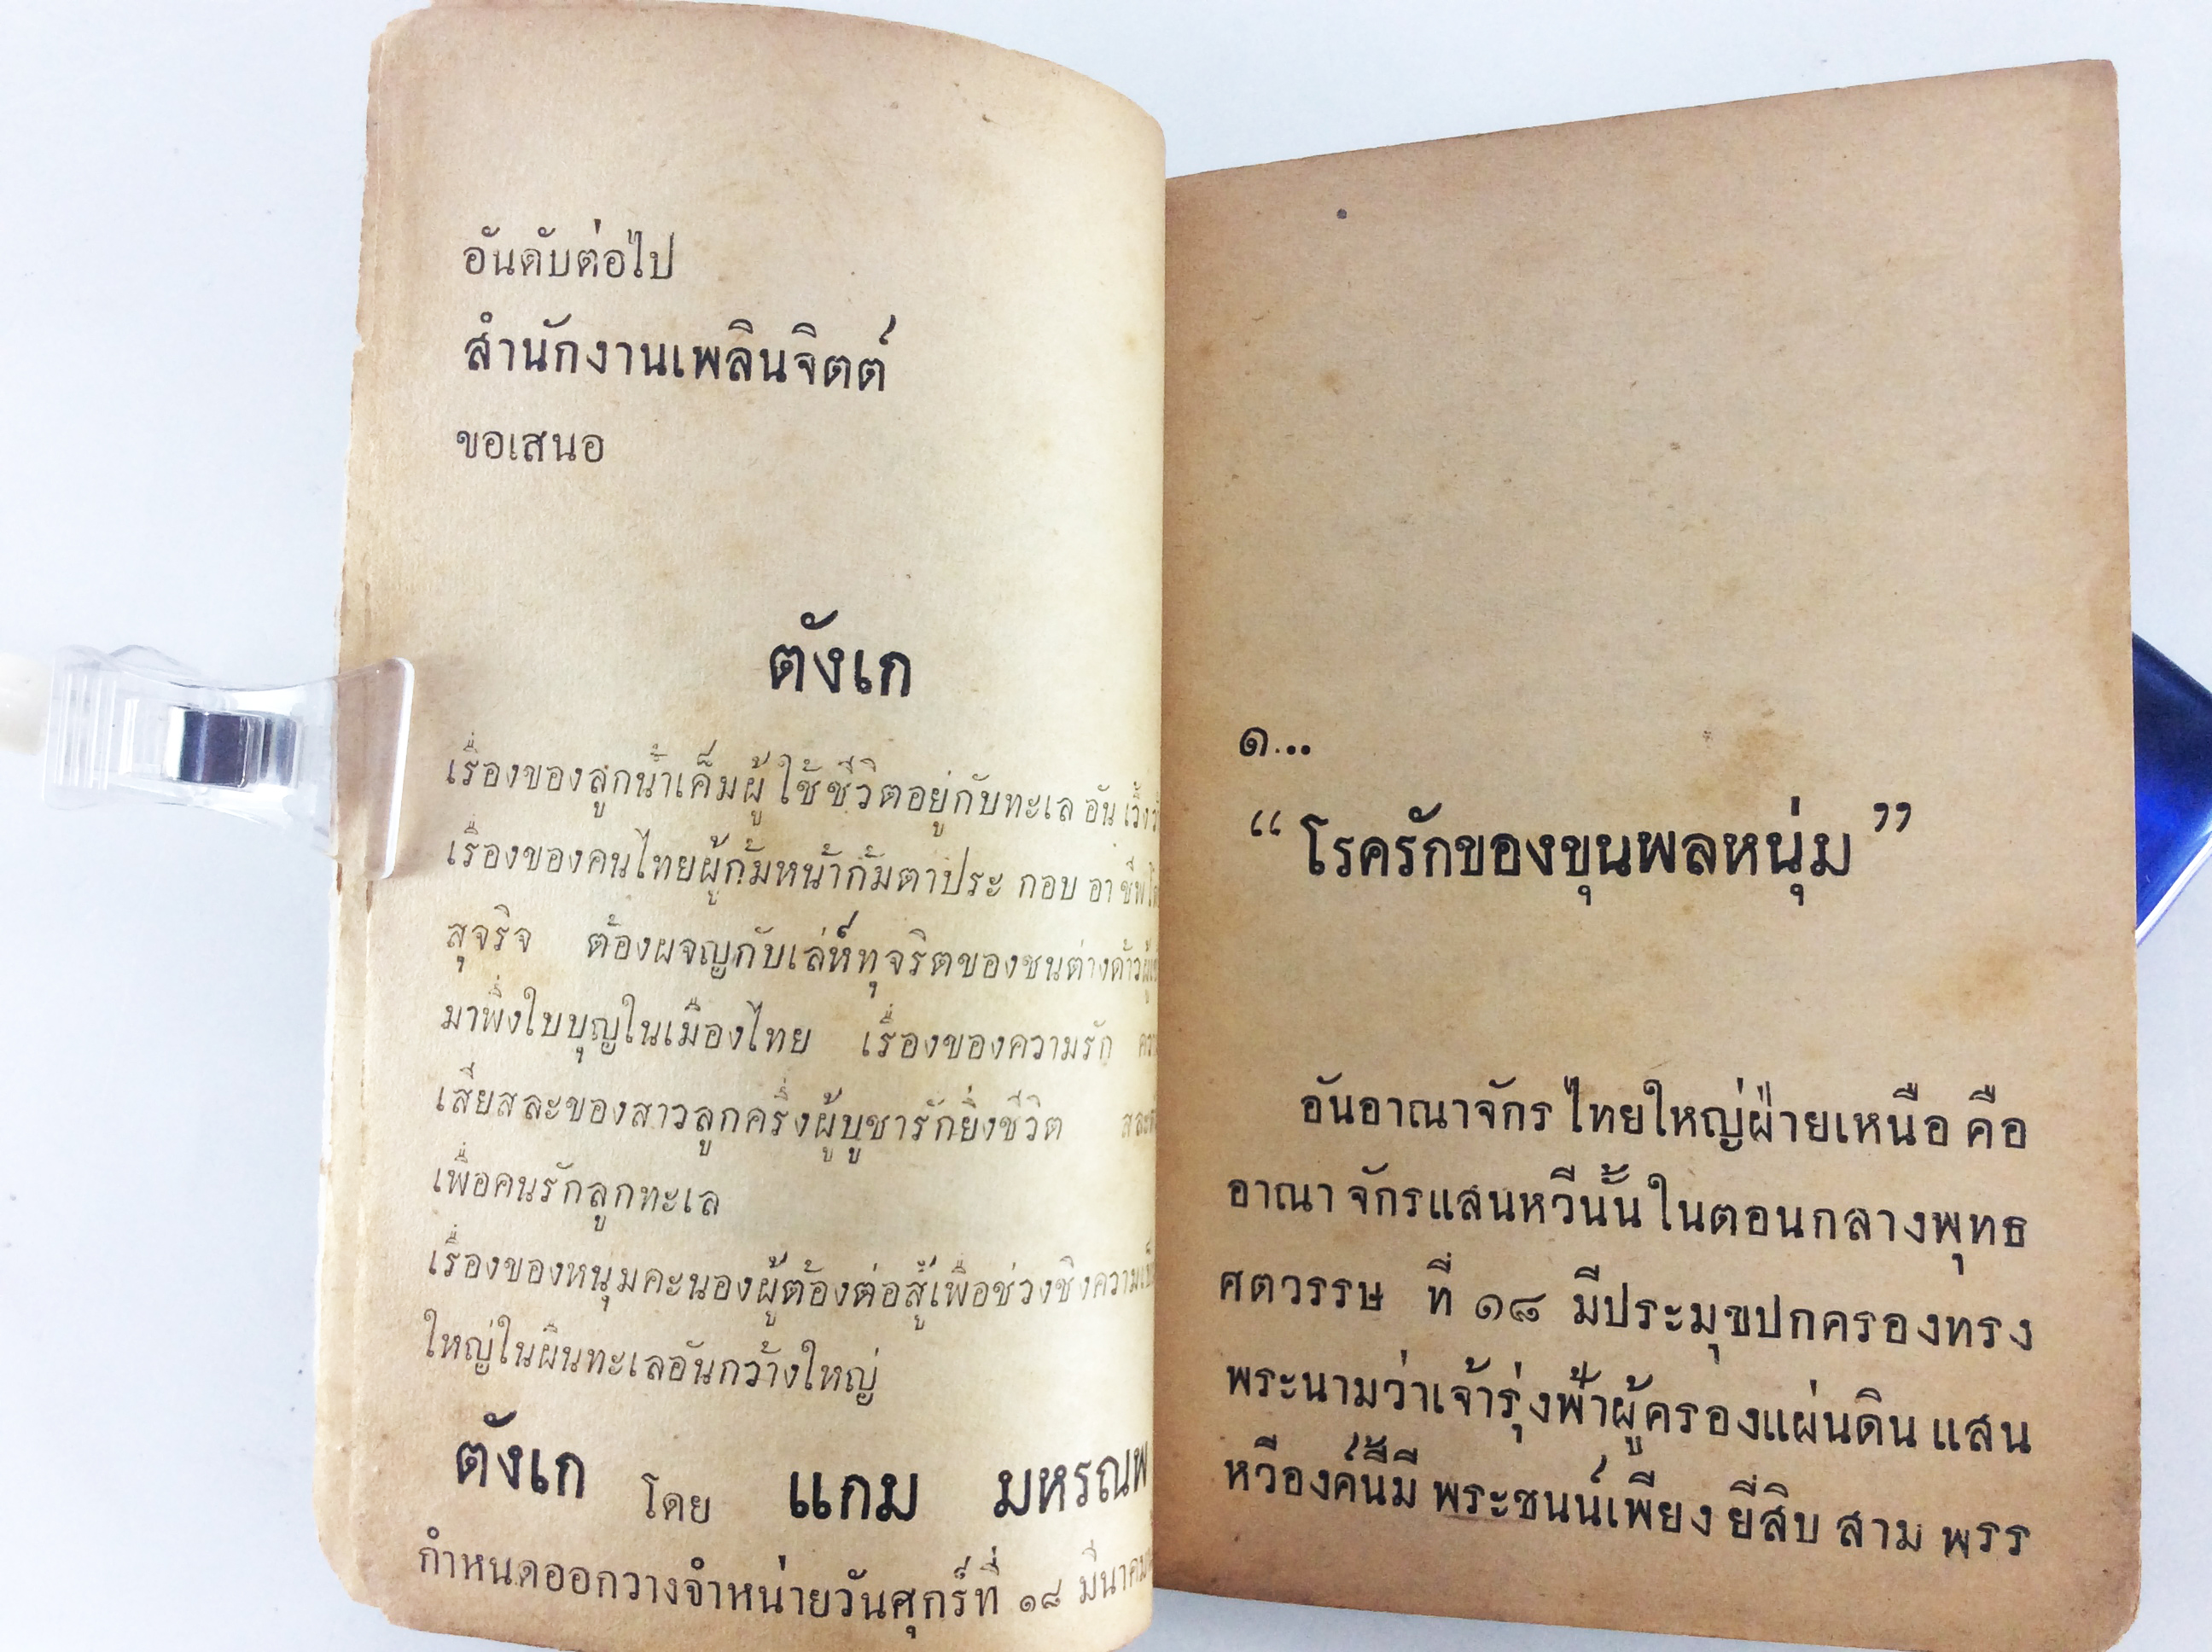 อันดับต่อไป
สำนักงานเพลินจิตต์
ขอเสนอ
ตังเก
เรื่องของลูกน้ำเค็มผู้ ใช้ชีวิตอยู่กับทะเล อัน
เรื่องของคนไทยผู้ก้มหน้าก้มตาประ กอบ อาชีพ
สุจริจ ต้องผจญกับเล่ห์ทุจริตของชนต่างด้าว
มาพึ่งใบบุญในเมืองไทย เรื่องของความรัก
เสียสละของสาวลูกครึ่งผู้บูชารักยิ่งชีวิต
เพื่อคนรักลูกทะเล
เรื่องของหนุ่มคะนองผู้ต้องต่อสู้เพื่อช่วงชิงความ
ใหญ่ในผืนทะเลอันกว้างใหญ่
ตังเก โดย แกม มหรณพ
กำหนดออกวางจำหน่ายวันศุกร์ที่ ๑๘ มีนาคม
๑...
“ โรครักของขุนพลหนุ่ม ”
อันอาณาจักร ไทยใหญ่ฝ่ายเหนือ คือ
อาณา จักรแสนหวีนั้น ในตอนกลางพุทธ
ศตวรรษ ที่ ๑๘ มีประมุขปกครองทรง
พระนามว่าเจ้ารุ่งฟ้าผู้ครองแผ่นดิน แสน
หวีองค์นี้มี พระชนน์เพียง ยี่สิบ สาม พรร